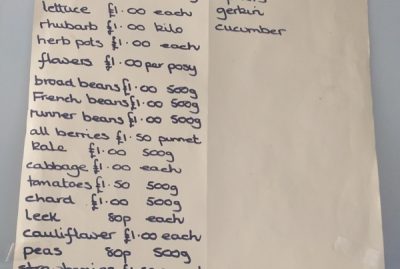 lettuce £1.00 each
rhubarb £1.00 kilo
herb pots £1.00 each
flowers £1.00 per posy
broad beans £1.00 500g
French beans £1.00 500g
runner beans £1.00 500g
all berries £1.50 punnet
kale £1.00 500g
cabbage £1.00 each
tomatoes £1.50 500g
chard £1.00 500g
leek 80p each
cauliflower £1.00 each
peas 80p 500g
gerkin
cucumber